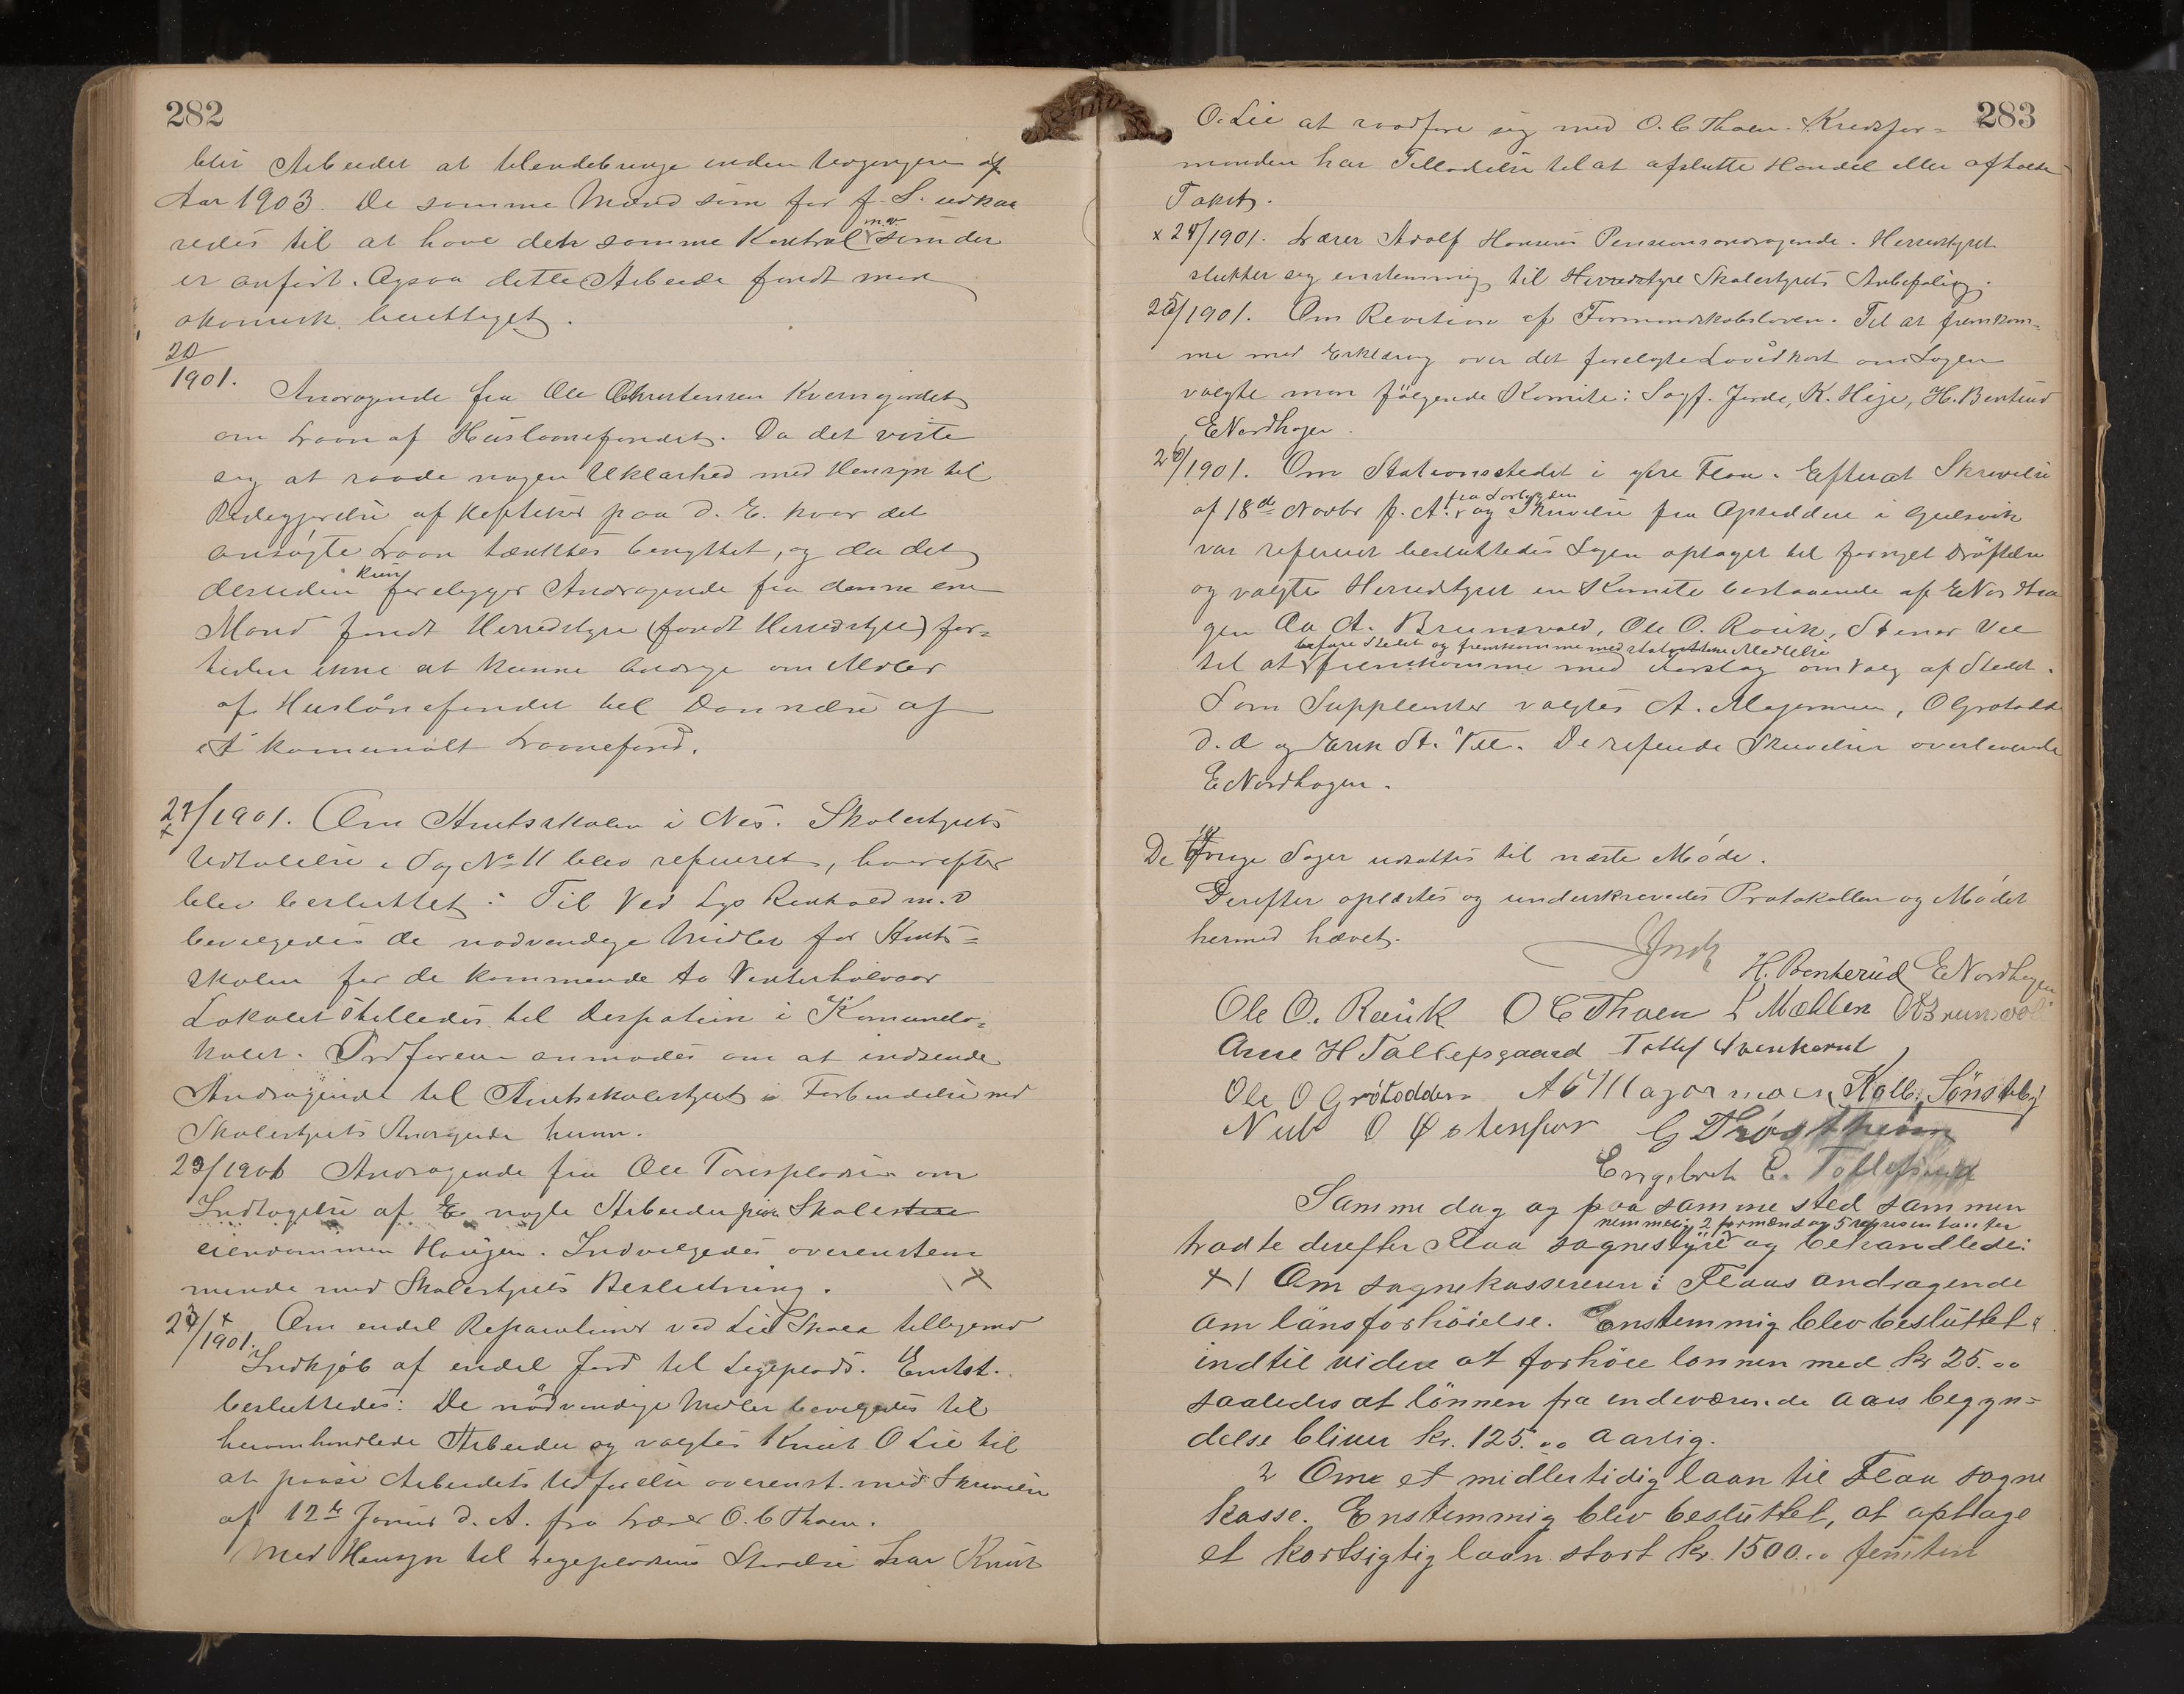 282
blir Arbeidet at tilendebringe inden Udgangen af
Aar 1903. De samme Mænd som for f. S. udkaa
redes til at have den samme Kontrol m.v. som der
er anført. Ogsaa dette Arbeide fandt man
økonomisk berettiget.
20/1901. Andragende fra Ole Christensen Kverngjordet
om Laan af Huslaanefondet. Da det viste
sig at raade nogen Uklarhed med Hensyn til
Redegjørelse af Hæftelser paa d. E. hvor det
ansøgte Laan tænktes benyttet, og da det
desuden kun foreligger Andragende fra denne ene
Mand fandt Herredstyre (fandt Herredstyre) for-
tiden ikke at kunne andrage om Midler
af Huslånefondet til Dannelse af
et kommunalt Laanefond.
21/1901. Om Amtsskolen i Nes. Skolestyrets
Udtalelse i Sag No 11 blev referert, hvorefter
blev besluttet: Til Ved Lys Renhold m.v
bevilgedes de nødvendige Midler for Amts-
skolen for de kommende to Vinterhalvaar
Lokalet stilledes til Disposition i Komunelo-
kalet. Ordføreren anmodes om at indsende
Andragende til Amtsskolestyret i Forbindelse med
Skolestyrets Andragende herom.
22/1901 Andragende fra Ole Torisplassen om
Indtagelse af E nogle Arbeider paa Skoles
eiendommen Haugen. Indvilgedes overenstem
mende med Skolestyrets Beslutning.
23/1901. Om endel Reparationer ved Lie Skole tilligemed
Indkjøb af endel Jord til Legeplads. Enst.
besluttedes: De nødvendige Midler bevilgedes til
heromhandlede Arbeider og valgtes Knut O Lie til
at paase Arbeidets Udførelse overenst. med Skrivelse
af 12te Januar d. A. fra Lærer O. C Thoen.
Med Hensyn til Legepladsens Størrelse har Knut
283
O. Lie at raadføre sig med O. C Thoen. Kredsfor-
manden har Tilladelse til at afslutte Handel eller afholde
Takst.
x 24/1901. Lærer Adolf Hansens Pensionsandragende. Herredstyret
slutter sig enstemmig til Herredstyre Skolestyrets Anbefaling.
25/1901. Om Revision af Formandskabsloven. Til at fremkom-
me med Erklæring over det forelagte Lovudkast om Sagen
valgte man følgende Komite: Sagf. Jorde, K. Heje, H. Benterud
E Nordhagen.
26/1901. Om Stationsstedet i ytre Flaa. Efterat Skrivelse
af 18de Novbr f. A. fra og Skrivelse fra Opsiddere i Gulsvik
var referert besluttedes Sagen optaget til fornyet Drøftelse
og valgte Herredstyret en Komite bestaaende af E Nordha
gen Aa A. Brunsvold, Ole O. Rouk, Stener Vee
befare Stedet og fremkomme med
til at fremkomme med Forslag om Valg af Stedet.
Som Suppleanter valgtes A. Magerman, O Grøtodd
d. æ og Erik St. Vee. De referede Skrivelser overleveredes
E Nordhagen.
De øvrige Sager udsattes til næste Møde.
Derefter oplæstes og underskrevedes Protokollen og Mødet
hermed hævet.
H. Benterud E Nordhagen
Ole O. Rouk O C Thoen L Mæhlen A Brunsvold
Arne H Tollefsgaard Tollef Svenkerud
Ole O Grøtodden A G Magerman, Kolb. Sønsteby
Nub O Østenfor G Trøstheim
Engebret E. Tollefsrud
Samme dag og paa samme sted sammen
nemmelig 2 formænd og 5 representanter
tradte derefter Flaa sognestyre og behandlede:
x 1 Om sognekassereren i Flaas andragende
om lønsforhøielse. Enstemmig blev besluttet
indtil videre at forhøie lønnen med kr 25.00
saaledes at lönnen fra indeværende aars begyn-
delse bliver kr. 125.00 aarlig.
2 Om et midlertidig laan til Flaa sogne
kasse. Enstemmig blev besluttet, at optage
et kortsigtig laan stort kr. 1500.00 femten